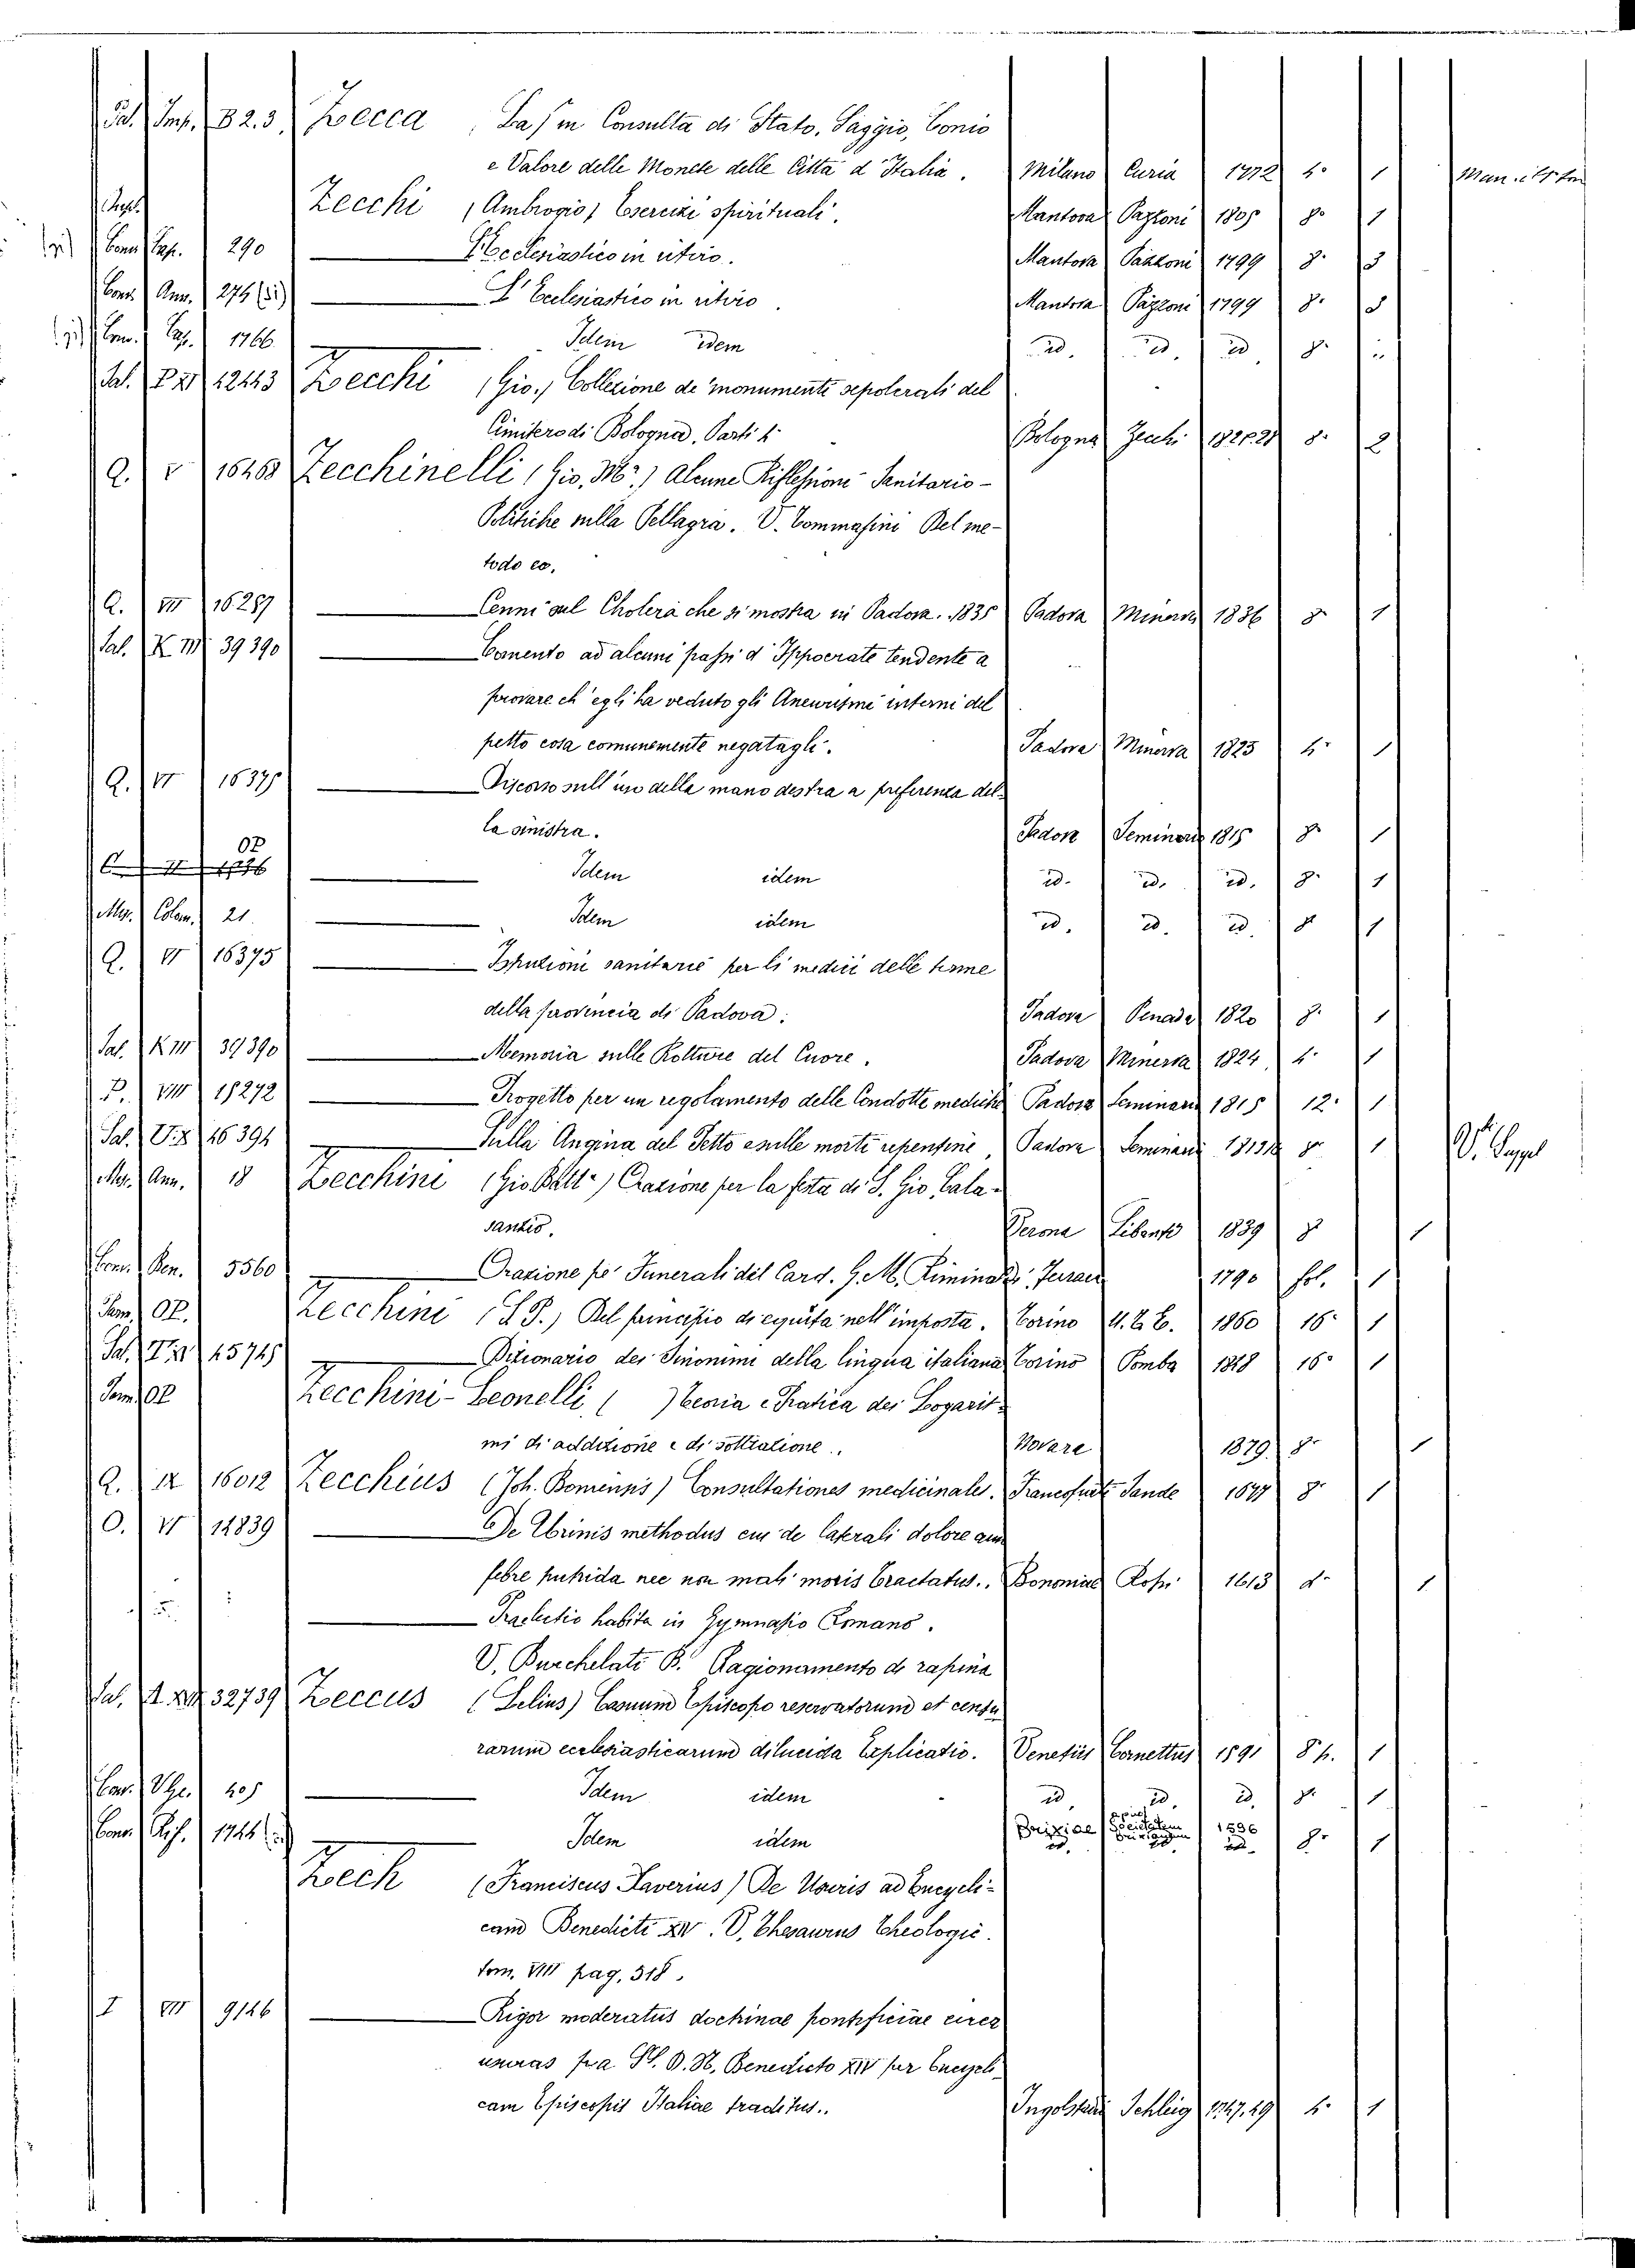 Sal. Imp. 82.3. Zecca . La / in Consulta di Stato, Saggio, Conio
e Valore delle Monete delle Città d'Italia. Milano Curia 1772 4° 1
Zecchi (Ambrogio) Esercizi spirituali. Mantova Pazzoni 1805 8° 1
Cap. 290 — L'Ecclesiastico in ritiro. Mantova Pazzoni 1799 8° 3
Ann. 274 — L'Ecclesiastico in ritiro. Mantova Pazzoni 1799 8° 3
Cap. 1766 — Idem idem id. id. id. 8°
Sal. 12443 Zecchi (Gio.) Collezione de' monumenti sepolcrali del
Cimitero di Bologna, Parti 4. Bologna Zecchi 1827.28 8° 2
Q. V 16468 Zecchinelli (Gio. M.ª) Alcune Riflessioni Sanitario-
Politiche sulla Pellagra. V. Tommasini Del me-
todo ec.
Q. VII 16287 — Cenni sul Cholera che si mostra in Padova. 1835 Padova Minerva 1836 8° 1
Sal. K. III 39390 — Comento ad alcuni passi d'Ippocrate tendente a
provare ch'egli ha veduto gli Aneurismi interni del
petto cosa comunemente negatagli. Padova Minerva 1825 4° 1
Q. VI 16375 — Discorso sull'uso della mano destra a preferenza del-
la sinistra. Padova Seminario 1815 8° 1
— Idem idem id. id. id. 8° 1
Colom. 21 — Idem idem id. id. id. 8° 1
Q. VI 16375 — Istruzioni sanitarie per li medici delle terme
della provincia di Padova. Padova Penada 1820 8° 1
Sal. K. III 39390 — Memoria sulle Rotture del Cuore. Padova Minerva 1824 4° 1
P. VIII 15272 — Progetto per un regolamento delle Condotte mediche Padova Seminario 1815 12° 1
Sal. 46394 — Sulla Angina del Petto e sulle morti repentine, Padova Seminario 1813.14 8° 1
Ann. 18 Zecchini (Gio. Batt.ª) Orazione per la festa di S. Gio. Cala-
sanzio. Verona Libanti 1839 8° 1
Ben. 5560 — Orazione pe' Funerali del Card. G. M. Riminaldi. Ferrara 1790 fol. 1
Op. Zecchini (S. P.) Del principio di equità nell'imposta. Torino U. T. E. 1860 16° 1
Sal. 45745 — Dizionario dei Sinonimi della lingua italiana Torino Pomba 1848 16° 1
Op. Zecchini-Leonelli ( ) Teoria e Pratica dei Logarit-
mi di addizione e di sottrazione. Novara 1879 8° 1
Q. IX 16012 Zecchius (Joh. Bomenius) Consultationes medicinales. Francofurti Sande 1677 8° 1
O. VI 14839 — De Urinis methodus ejus de laterali dolore cum
febre putrida nec non mali moris Tractatus. Bononiae Rossi 1613 4° 1
— Praelectio habita in Gymnasio Romano.
V. Burchelati B. Ragionamento di rapina
Sal. 32739 Zeccus (Lelius) Casuum Episcopo reservatorum et censu-
rarum ecclesiasticarum dilucida Explicatio. Venetiis Cornettus 1591 8° 1
405 — Idem idem id. id. id. 8° 1
Cap. 1744 — Idem idem Brixiae apud Societatem Brixianam 1596 8° 1
Zech (Franciscus Xaverius) De Usuris ad Encycli-
cam Benedicti XIV. V. Thesaurus Theologic.
tom. VIII pag. 318.
I VIII 9146 — Rigor moderatus doctrinae pontificiae circa
usuras pra SS. D. N. Benedicto XIV per Encycli-
cam Episcopis Italiae traditus. Ingolstadii Schleig 1747.49 4° 1